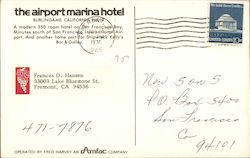 the airport marina hotel
BURLINGAME, CALIFORNIA
A modern 350 room hotel on San Francisco Bay.
Minutes south of San Francisco International Air-
port. And another home port for Shipwreck Kelly's
Bar & Galley.
75
Frances D. Hansen
33003 Lake Bluestone St.
Fremont, CA 94536
471-7876
News on 5
PO Box 5400
San Francisco
Ca
94101
OPERATED BY FRED HARVEY AN Amfac COMPANY